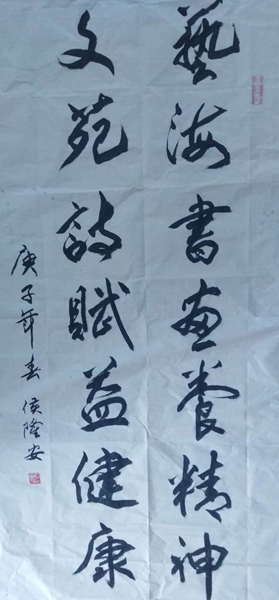 藝海書畫養精神
文苑詩賦益健康
庚子年春 侯隆安